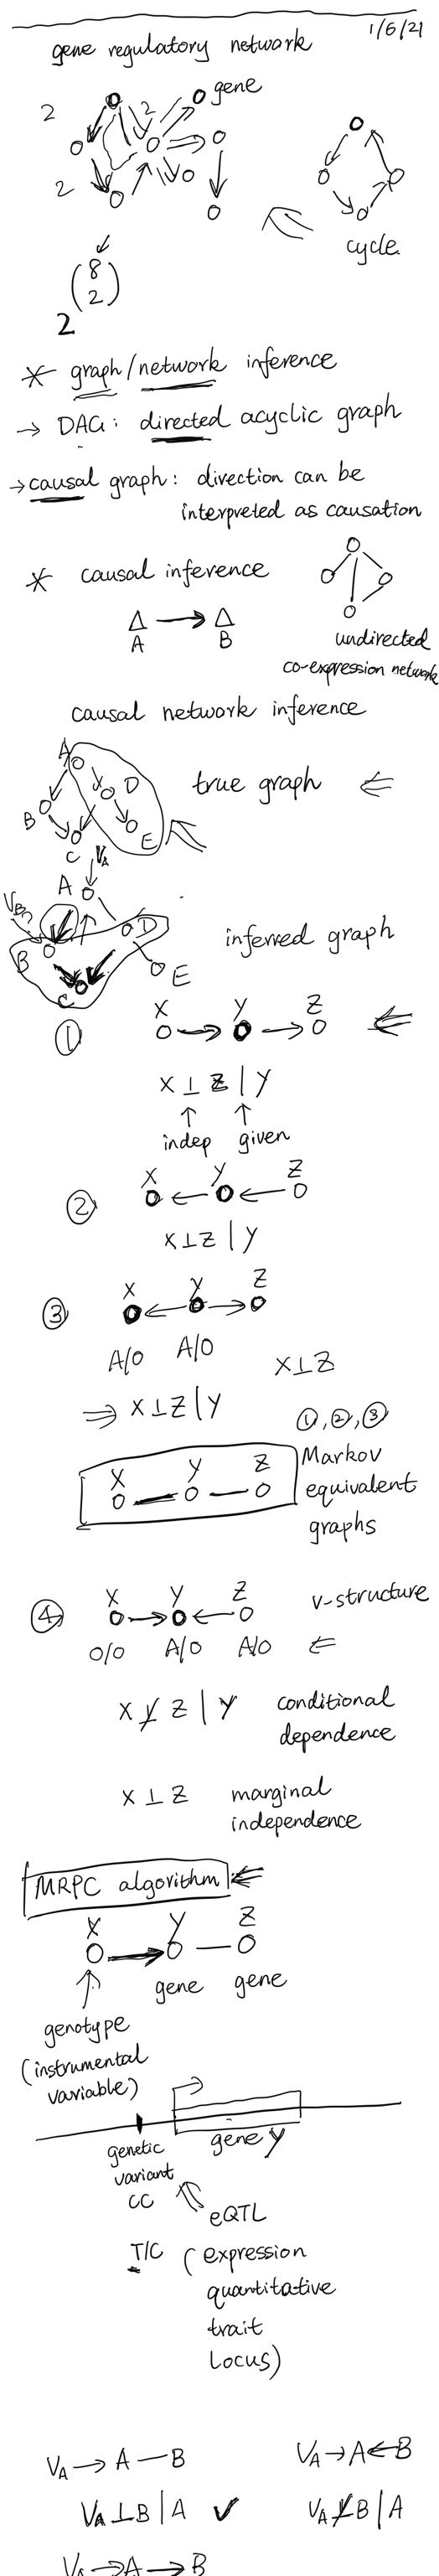 1/6/21
gene regulatory network
2
2
gene
2
cycle
(8
2)
2
* graph/network inference
→ DAG: directed acyclic graph
→ causal graph: direction can be
interpreted as causation
* causal inference
A → B
undirected
co-expression network
causal network inference
A
B
D
C
E
true graph ⇐
V_A
A
V_B
B
D
C
E
inferred graph
①
X → Y → Z ⇐
X ⊥ Z | Y
↑ ↑
indep given
②
X ← Y ← Z
X ⊥ Z | Y
③
X ← Y → Z
A/0 A/0
X ⊥ Z
⇒ X ⊥ Z | Y
①, ②, ③
X — Y — Z
Markov
equivalent
graphs
④ X → Y ← Z v-structure
0/0 A/0 A/0 ⇐
X ⊥̸ Z | Y conditional
dependence
X ⊥ Z marginal
independence
MRPC algorithm ⇐
X → Y — Z
↑ gene gene
genotype
(instrumental
variable)
gene Y
genetic
variant
CC
eQTL
T/C (expression
quantitative
trait
locus)
V_A → A — B
V_A → A ← B
V_A ⊥ B | A ✓
V_A ⊥̸ B | A
V_A → A → B